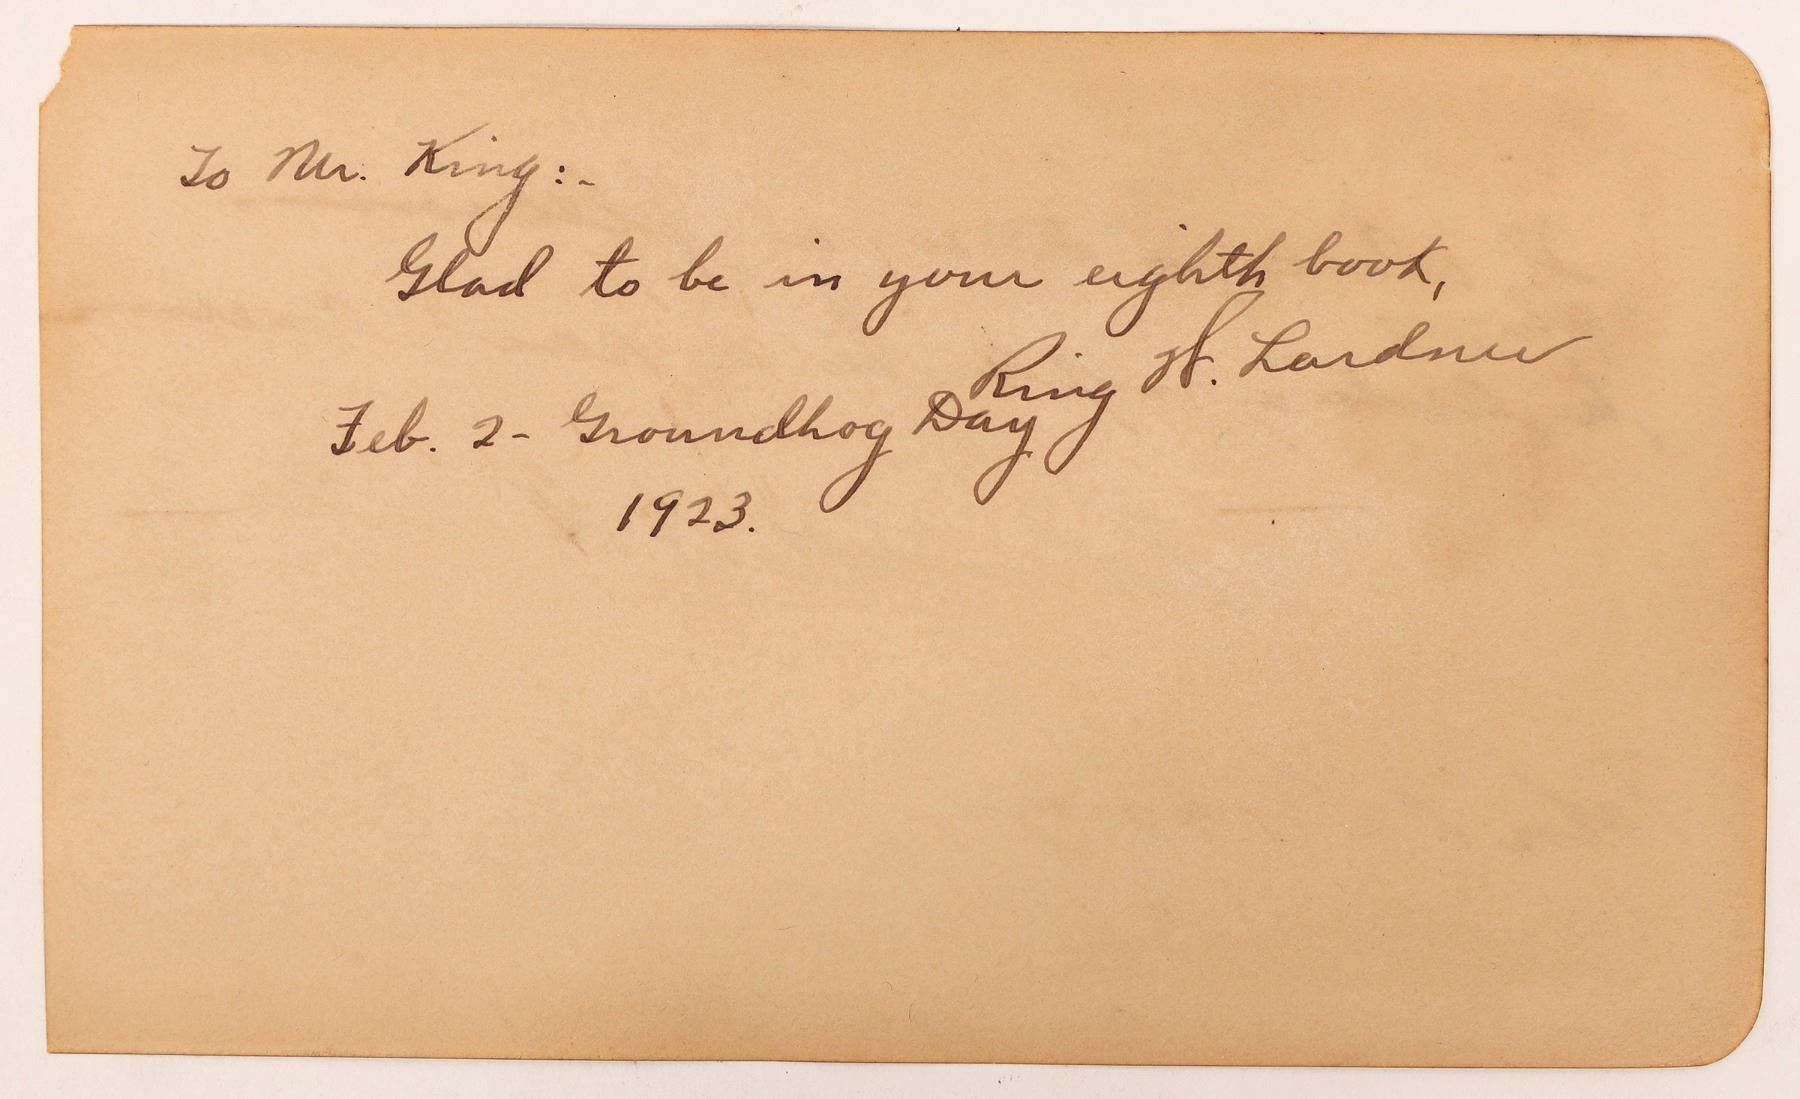 To Mr. King:-
Glad to be in your eighth book,
Ring W. Lardner
Feb. 2 - Groundhog Day
1923.